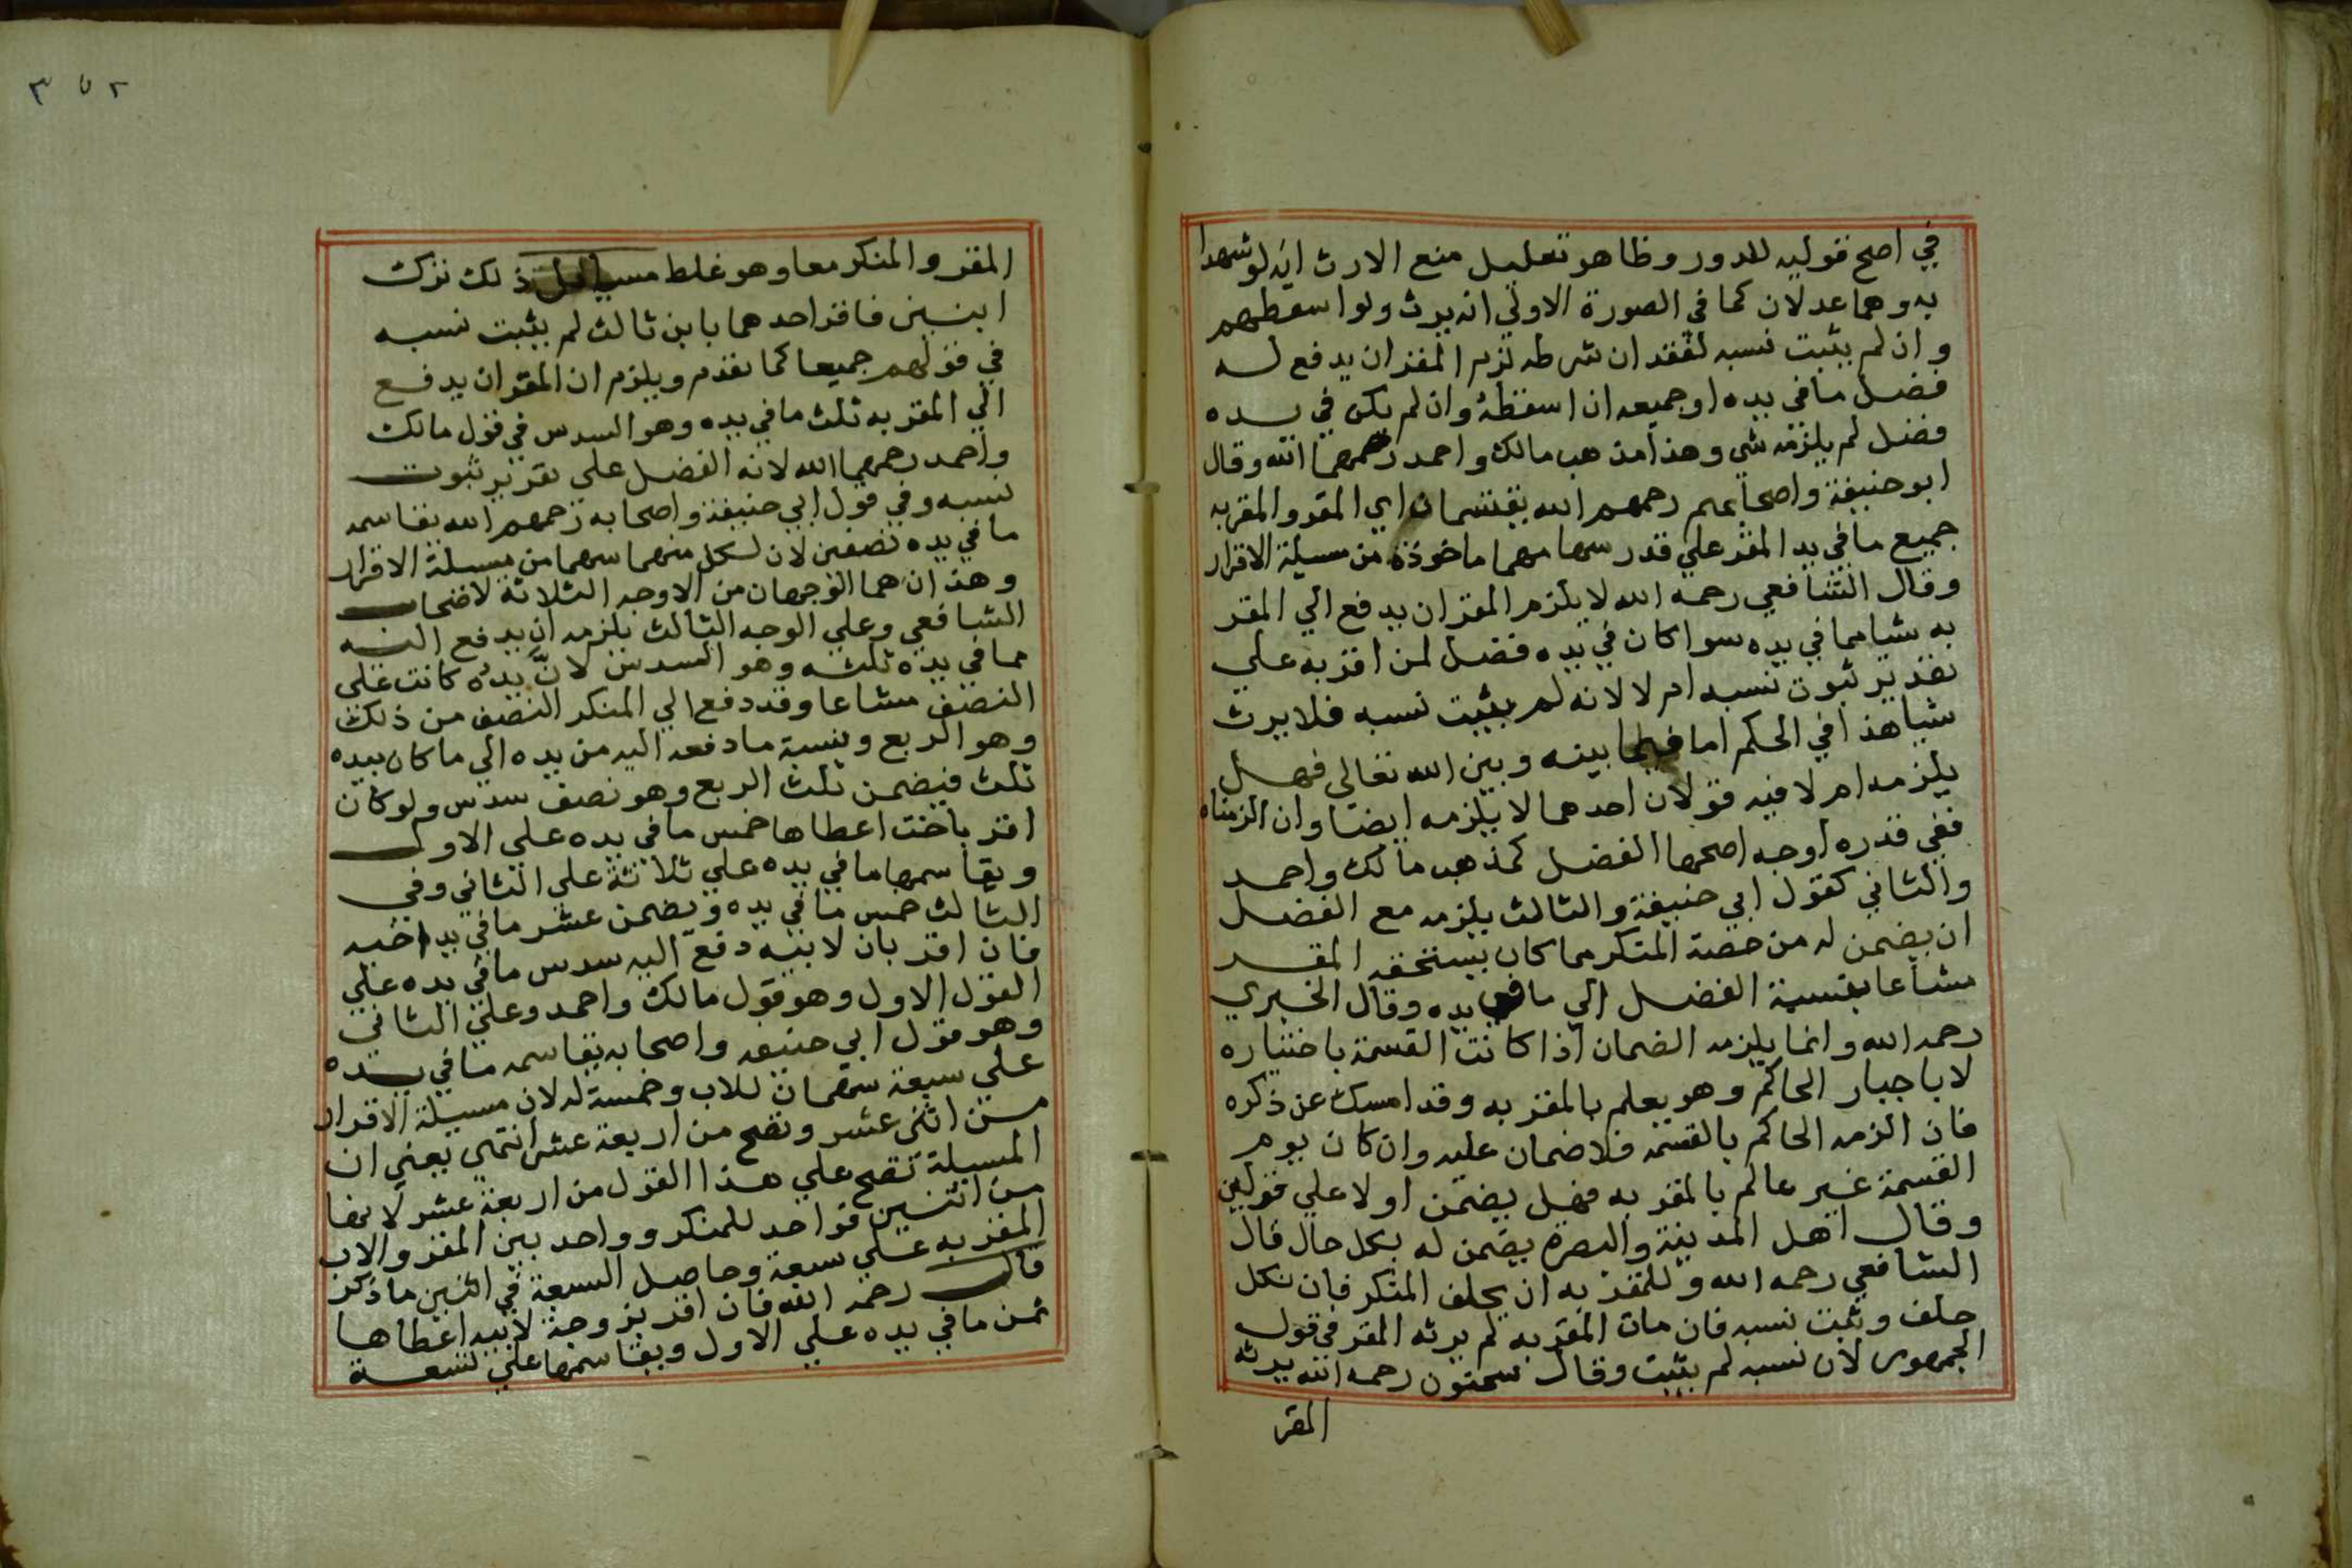 في اصح قوليه للدور وظاهر تعليل منع الارث انه لو شهدا
به وهما عدلان كما في الصورة الاولي انه يرث ولو اسقطهم
وان لم يثبت نسبه لفقد ان شرطه لزم المقر ان يدفع له
فضل ما في يده او جميعه ان اسقطه وان لم يكن في يده
فضل لم يلزمه شي وهذا مذهب مالك واحمد رحمهما الله وقال
ابو حنيفة واصحابهم رحمهم الله يقتسمان اي المقر والمقر به
جميع ما في يد المقر علي قدر سهامهما ماخوذة من مسيلة الاقرار
وقال الشافعي رحمه الله لا يلزم المقر ان يدفع الي المقر
به شيا مما في يده سوا كان في يده فضل لمن اقر به علي
تقدير ثبوت نسبه ام لا لانه لم يثبت نسبه فلا يرث
شيا هذا في الحكم اما فيما بينه وبين الله تعالي فهل
يلزمه ام لا فيه قولان احدهما لا يلزمه ايضا وان الزمناه
ففي قدره اوجه اصحها الفضل كمذهب مالك واحمد
والثاني كقول ابي حنيفة والثالث يلزمه مع الفضل
ان يضمن له من حصة المنكر مما كان يستحقه المقر
مشاعا بنسبة الفضل الي ما في يده وقال الخبري
رحمه الله وانما يلزمه الضمان اذا كانت القسمة باختياره
لا باجبار الحاكم وهو يعلم بالمقر به وقد امسك عن ذكره
فان الزمه الحاكم بالقسمة فلا ضمان عليه وان كان يوم
القسمة غير عالم بالمقر به فهل يضمن اولا علي قولين
وقال اهل المدينة والبصرة يضمن له بكل حال قال
الشافعي رحمه الله وللمقر به ان يحلف المنكر فان نكل
حلف وثبت نسبه فان مات المقر به لم يرثه المقر في قول
الجمهور لان نسبه لم يثبت وقال سحنون رحمه الله يرثه
المقر
٣٥٢
المقر والمنكر معا وهو غلط ذلك ترك
ابنين فاقر احدهما بابن ثالث لم يثبت نسبه
في قولهم جميعا كما تقدم ويلزم ان المقر ان يدفع
الي المقر به ثلث ما في يده وهو السدس في قول مالك
واحمد رحمهما الله لانه الفضل علي تقرير ثبوت
نسبه وفي قول ابي حنيفة واصحابه رحمهم الله يقاسمه
ما في يده نصفين لان لكل منهما سهما من مسيلة الاقرار
وهذان هما الوجهان من الاوجه الثلاثة لاضحاب
الشافعي وعلي الوجه الثالث يلزمه ان يدفع اليه
مما في يده ثلثه وهو السدس لان يده كانت علي
النصف مشاعا وقد دفع الي المنكر النصف من ذلك
وهو الربع ونسبة ما دفعه اليه من يده الي ما كان بيده
ثلث فيضمن ثلث الربع وهو نصف سدس ولو كان
اقر باخت اعطاها خمس ما في يده علي الاول
ويقاسمها ما في يده علي ثلاثة علي الثاني وفي
الثالث خمس ما في يده ويضمن عشر ما في يد اخيه
فان اقر بان لابنه دفع اليه سدس ما في يده علي
القول الاول وهو قول مالك واحمد وعلي الثاني
وهو قول ابي حنيفه واصحابه يقاسمه ما في يده
علي سبعة سهمان للاب وخمسة له لان مسيلة الاقرار
من اثني عشر وتصح من اربعة عشر انتهي يعني ان
المسيلة تصح علي هذا القول من اربعة عشر لانها
من اثنين فواحد للمنكر وواحد بين المقر والاب
المقر به علي سبعة وحاصل السبعة في اثنين ما ذكر
قال رحمه الله فان اقر بزوجة لابيه اعطاها
ثمن ما في يده علي الاول ويقاسمها علي تسعة